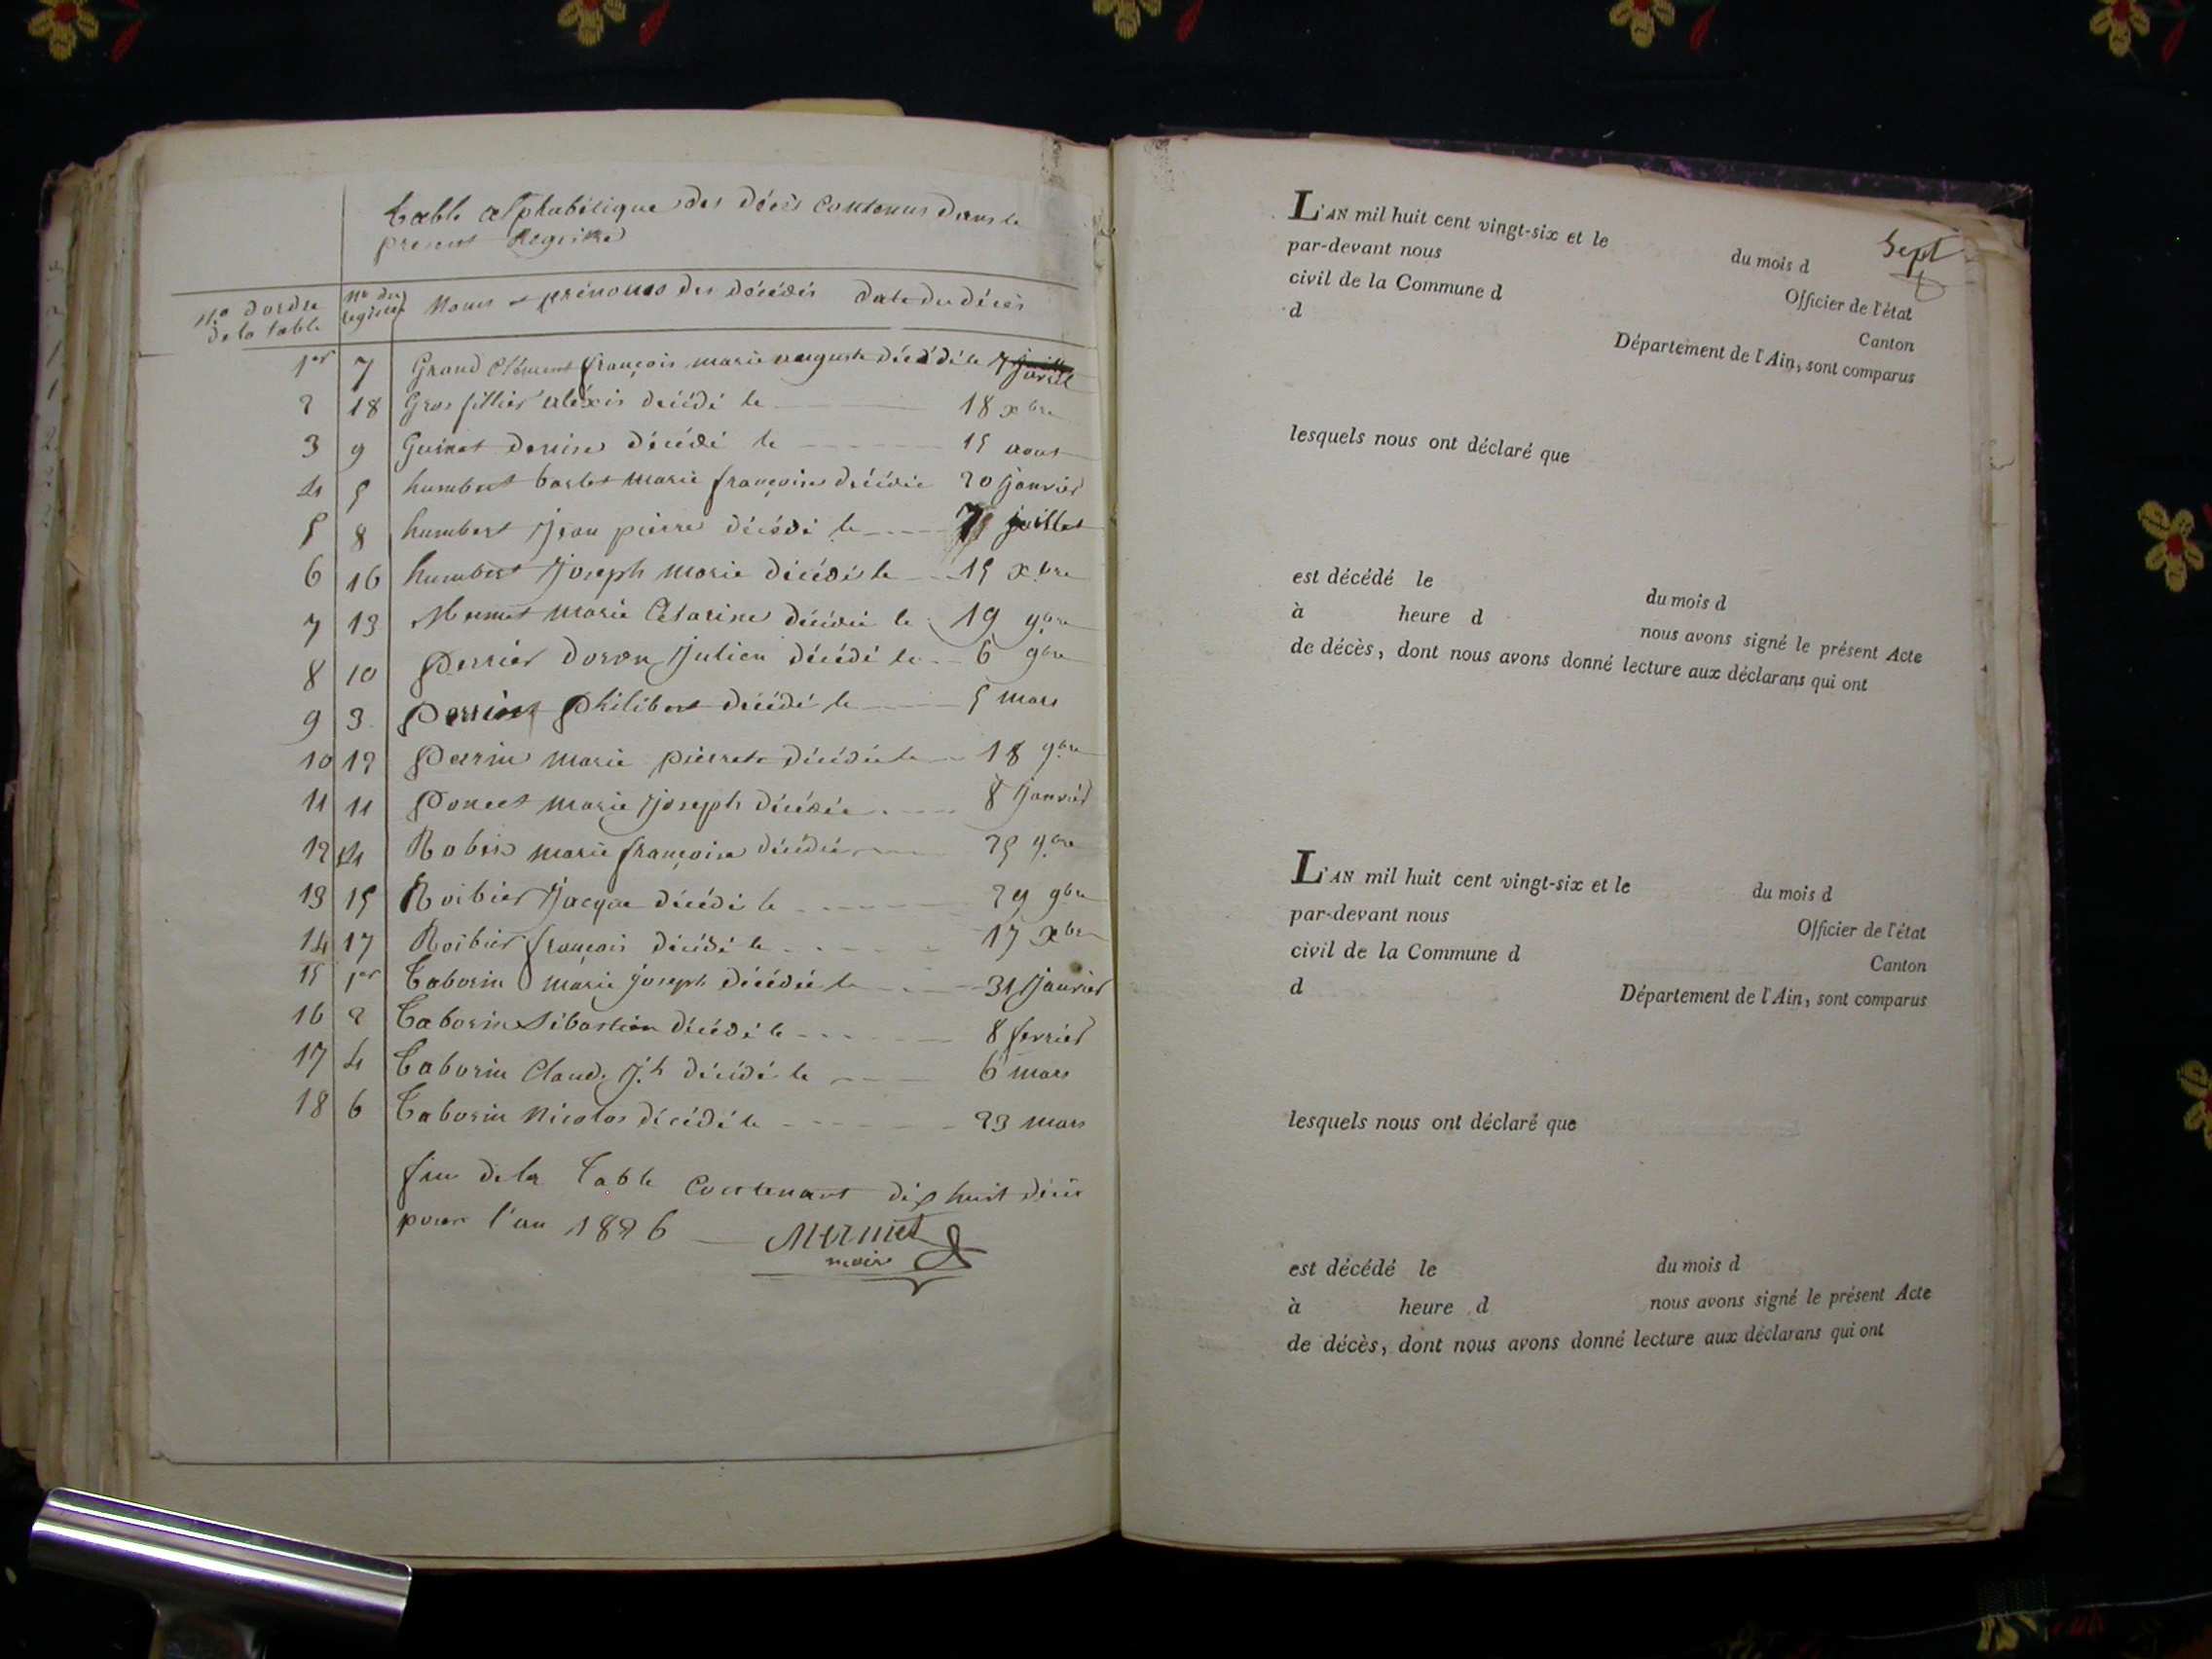 table alphabétique des décès contenus dans le
présent Registre
n.o d'ordre de la table | N.o du registre | Noms et prénoms des décédés | date du décès
1er 7 Grand Clément françois marie auguste décédé le 7 avril
2 18 Grosfillier aléxis décédé le 18 xbre
3 9 Guinet denise décédé le 15 aout
4 5 humbert barlet marie françoise décédée 20 janvier
5 8 humbert jean pierre décédé le juillet
6 16 humbert joseph marie décédé le 15 xbre
7 13 Mermet marie Césarine décédée le 19 9bre
8 10 Perrier doron julien décédé le 6 9bre
9 3 Philibert décédé le 5 mars
10 12 Perrin marie pierrete décédée le 18 9bre
11 11 Poncet marie joseph décédée 8 janvier
12 14 Robin marie françoise décédée 25 9bre
13 15 Roibier jacque décédé le 29 9bre
14 17 Roibier françois décédé le 17 xbre
15 1er Taborin marie joseph décédée le 31 janvier
16 2 Taborin Sébastien décédé le 8 fevrier
17 4 Taborin Claude j.h décédé le 6 mars
18 6 Taborin Nicolas décédé le 23 mars
fin de la Table Contenant dix huit décès
pour l'an 1826 Mermet
maire
Sept
L'AN mil huit cent vingt-six et le du mois d
par-devant nous Officier de l'état
civil de la Commune d Canton
d Département de l'Ain, sont comparus
lesquels nous ont déclaré que
est décédé le du mois d
à heure d nous avons signé le présent Acte
de décès, dont nous avons donné lecture aux déclarans qui ont
L'AN mil huit cent vingt-six et le du mois d
par-devant nous Officier de l'état
civil de la Commune d Canton
d Département de l'Ain, sont comparus
lesquels nous ont déclaré que
est décédé le du mois d
à heure d nous avons signé le présent Acte
de décès, dont nous avons donné lecture aux déclarans qui ont